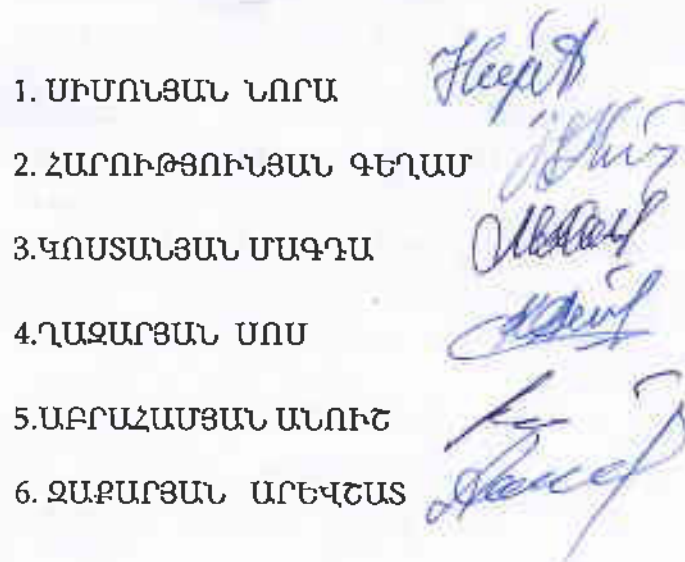 1. ՍԻՄՈՆՅԱՆ ՆՈՐԱ
2. ՀԱՐՈՒԹՅՈՒՆՅԱՆ ԳԵՂԱՄ
3.ԿՈՍՏԱՆՅԱՆ ՄԱԳԴԱ
4.ՂԱԶԱՐՅԱՆ ՍՈՍ
5.ԱԲՐԱՀԱՄՅԱՆ ԱՆՈՒՇ
6. ԶԱՔԱՐՅԱՆ ԱՐԵՎՇԱՏ